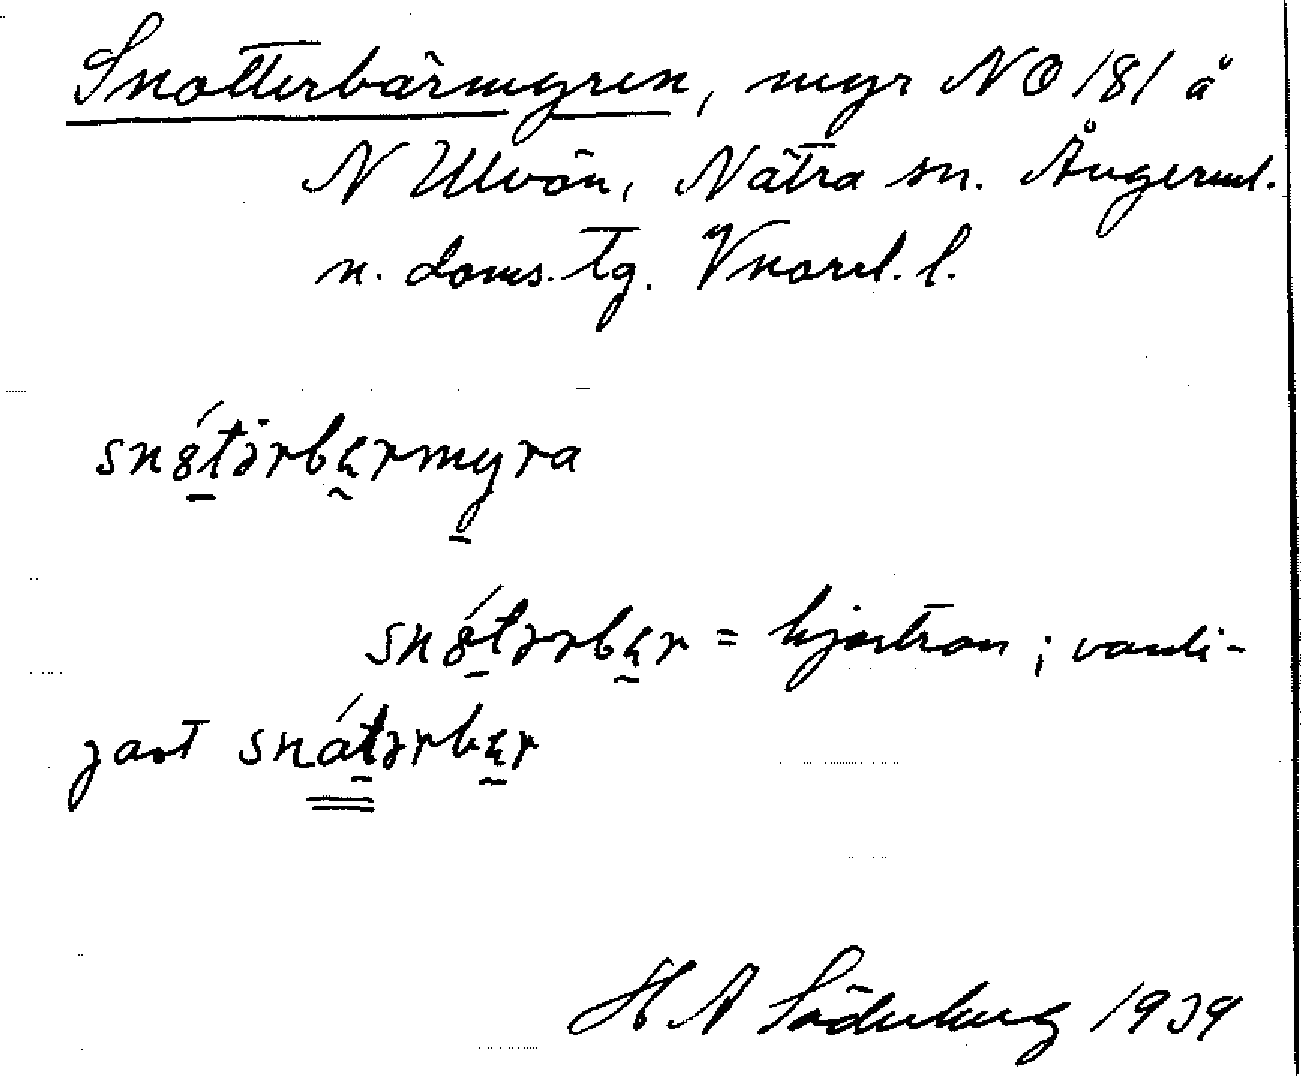 Snotterbärmyren, myr NO 181 å
N Ulvön, Nätra sn. Ångerml.
n. doms. tg. Vnorrl. l.
snȣ́tərbærmyra
snȣ́tərbær = hjortron; vanli-
gast snátərbær
H A Söderberg 1939